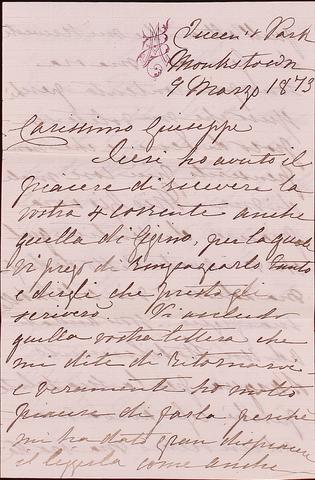 Queen's Park
Monkstown
9 Marzo 1873
Carissimo Giuseppe
Ieri ho avuto il
piacere di ricevere la
vostra 4 corrente anche
quella di per la quale
vi prego di ringraziarlo tanto
e dirgli che presto gli
scriverò. Vi accludo
quella vostra lettera che
mi dite di ritornarvi
e veramente ho molto
piacere di farlo perchè
mi ha dato gran dispiacere
il leggerla come anche